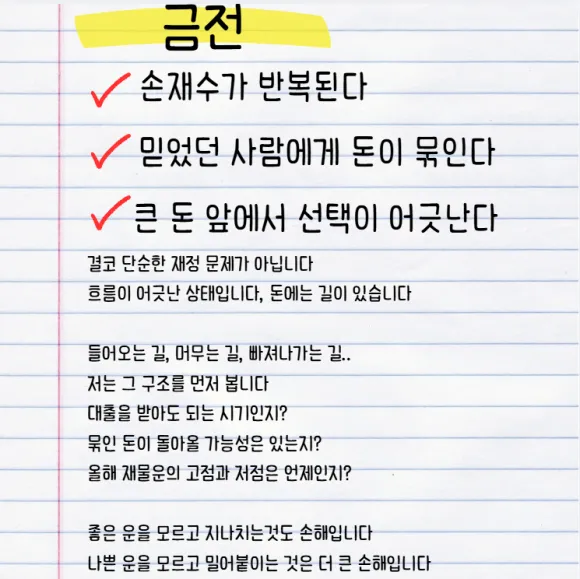 금전
손재수가 반복된다
믿었던 사람에게 돈이 묶인다
큰 돈 앞에서 선택이 어긋난다
결코 단순한 재정 문제가 아닙니다
흐름이 어긋난 상태입니다, 돈에는 길이 있습니다
들어오는 길, 머무는 길, 빠져나가는 길..
저는 그 구조를 먼저 봅니다
대출을 받아도 되는 시기인지?
묶인 돈이 돌아올 가능성은 있는지?
올해 재물운의 고점과 저점은 언제인지?
좋은 운을 모르고 지나치는것도 손해입니다
나쁜 운을 모르고 밀어붙이는 것은 더 큰 손해입니다